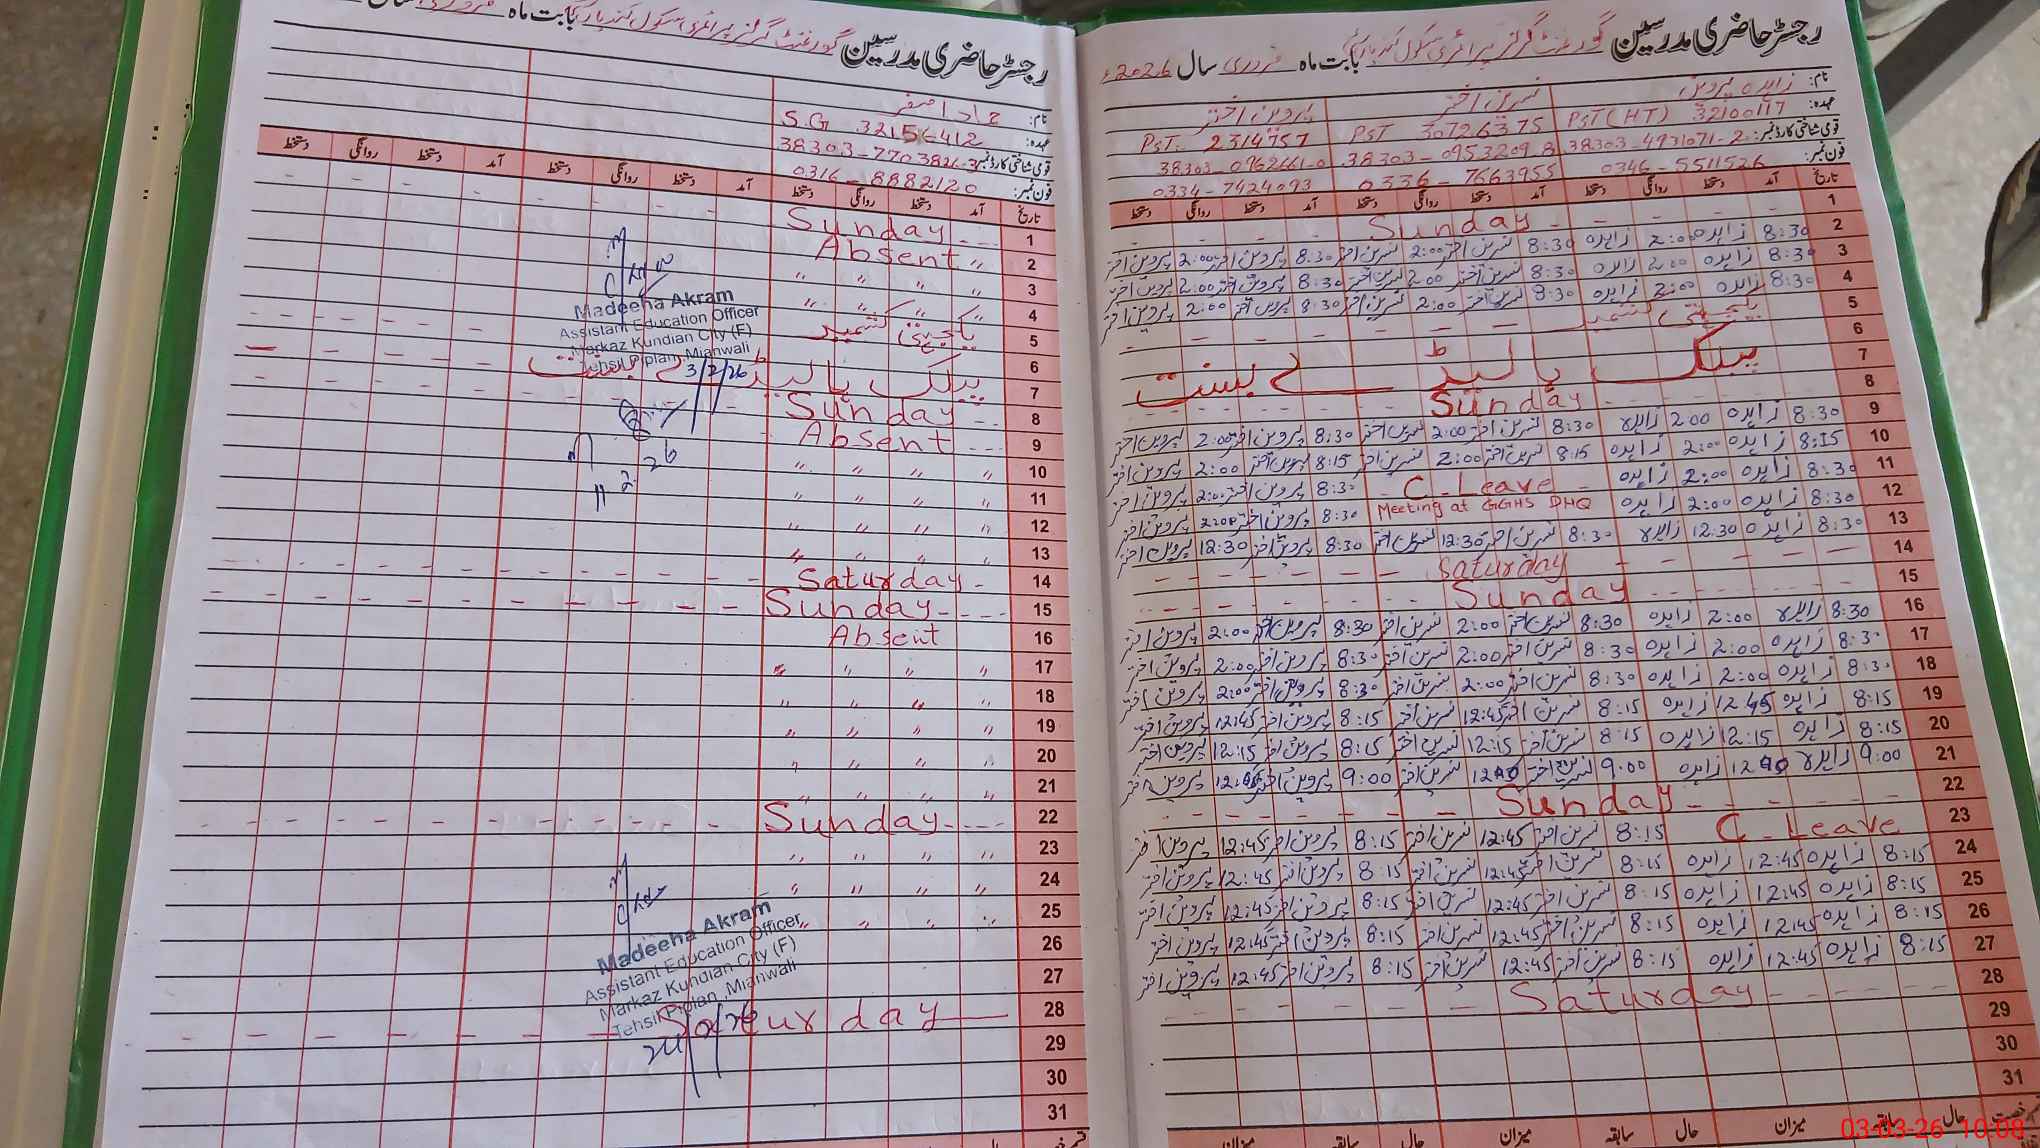 رجسٹر حاضری مدرسین گورنمنٹ گرلز پرائمری سکول بابت ماہ فروری سال 2026ء
نام: زاہدہ پروین نسرین اختر پروین اختر
عہدہ: PST (HT) 32100117 PST 30726375 PST. 2314757
قومی شناختی کارڈ نمبر: 38303-4931071-2 38303-0953209-8 38303-0962661-0
فون نمبر: 0346-5511526 0336-7663955 0334-7424093
تاریخ آمد دستخط روانگی دستخط آمد دستخط روانگی دستخط آمد دستخط روانگی دستخط
1 Sunday
2 8:30 زاہدہ 2:00 زاہدہ 8:30 نسرین اختر 2:00 نسرین اختر 8:30 پروین اختر 2:00 پروین اختر
3 8:30 زاہدہ 2:00 زاہدہ 8:30 نسرین اختر 2:00 نسرین اختر 8:30 پروین اختر 2:00 پروین اختر
4 8:30 زاہدہ 2:00 زاہدہ 8:30 نسرین اختر 2:00 نسرین اختر 8:30 پروین اختر 2:00 پروین اختر
5 یکجہتی کشمیر
6 پبلک ہالیڈے بسنت
7
8 Sunday
9 8:30 زاہدہ 2:00 زاہدہ 8:30 نسرین اختر 2:00 نسرین اختر 8:30 پروین اختر 2:00 پروین اختر
10 8:15 زاہدہ 2:00 زاہدہ 8:15 نسرین اختر 2:00 نسرین اختر 8:15 پروین اختر 2:00 پروین اختر
11 8:30 زاہدہ 2:00 زاہدہ C. Leave 8:30 پروین اختر 2:00 پروین اختر
12 8:30 زاہدہ 2:00 زاہدہ Meeting at GGHS DHQ 8:30 پروین اختر 2:00 پروین اختر
13 8:30 زاہدہ 12:30 زاہدہ 8:30 نسرین اختر 12:30 نسرین اختر 8:30 پروین اختر 12:30 پروین اختر
14 Saturday
15 Sunday
16 8:30 زاہدہ 2:00 زاہدہ 8:30 نسرین اختر 2:00 نسرین اختر 8:30 پروین اختر 2:00 پروین اختر
17 8:30 زاہدہ 2:00 زاہدہ 8:30 نسرین اختر 2:00 نسرین اختر 8:30 پروین اختر 2:00 پروین اختر
18 8:30 زاہدہ 2:00 زاہدہ 8:30 نسرین اختر 2:00 نسرین اختر 8:30 پروین اختر 2:00 پروین اختر
19 8:15 زاہدہ 12:45 زاہدہ 8:15 نسرین اختر 12:45 نسرین اختر 8:15 پروین اختر 12:45 پروین اختر
20 8:15 زاہدہ 12:15 زاہدہ 8:15 نسرین اختر 12:15 نسرین اختر 8:15 پروین اختر 12:15 پروین اختر
21 9:00 زاہدہ زاہدہ 9:00 نسرین اختر نسرین اختر 9:00 پروین اختر پروین اختر
22 Sunday
23 C. Leave 8:15 نسرین اختر 12:45 نسرین اختر 8:15 پروین اختر 12:45 پروین اختر
24 8:15 زاہدہ 12:45 زاہدہ 8:15 نسرین اختر 12:45 نسرین اختر 8:15 پروین اختر 12:45 پروین اختر
25 8:15 زاہدہ 12:45 زاہدہ 8:15 نسرین اختر 12:45 نسرین اختر 8:15 پروین اختر 12:45 پروین اختر
26 8:15 زاہدہ 12:45 زاہدہ 8:15 نسرین اختر 12:45 نسرین اختر 8:15 پروین اختر 12:45 پروین اختر
27 8:15 زاہدہ 12:45 زاہدہ 8:15 نسرین اختر 12:45 نسرین اختر 8:15 پروین اختر 12:45 پروین اختر
28 Saturday
29
30
31
رخصت حال سابقہ میزان حال سابقہ میزان حال سابقہ میزان
03-03-26 10:08
رجسٹر حاضری مدرسین گورنمنٹ گرلز پرائمری سکول بابت ماہ فروری سال
نام:
عہدہ: S.G
قومی شناختی کارڈ نمبر: 38303-7703826-3
فون نمبر: 0316-8882120
تاریخ آمد دستخط روانگی دستخط آمد دستخط روانگی دستخط آمد دستخط روانگی دستخط
1 Sunday
2 Absent "
3 " " "
4 " " "
5 یکجہتی کشمیر
6 پبلک ہالیڈے بسنت
7
8 Sunday
9 Absent
10 " " "
11 " " "
12 " " "
13 " " "
14 Saturday
15 Sunday
16 Absent
17 " " " "
18 " " " "
19 " " " "
20 " " " "
21 " " " "
22 Sunday
23 " " " "
24 " " " "
25 " " " "
26
27
28 Saturday
29
30
31
Madeeha Akram
Assistant Education Officer
Markaz Kundian City (F)
Tehsil Piplan, Mianwali
3/2/26
11 2 26
Madeeha Akram
Assistant Education Officer
Markaz Kundian City (F)
Tehsil Piplan, Mianwali